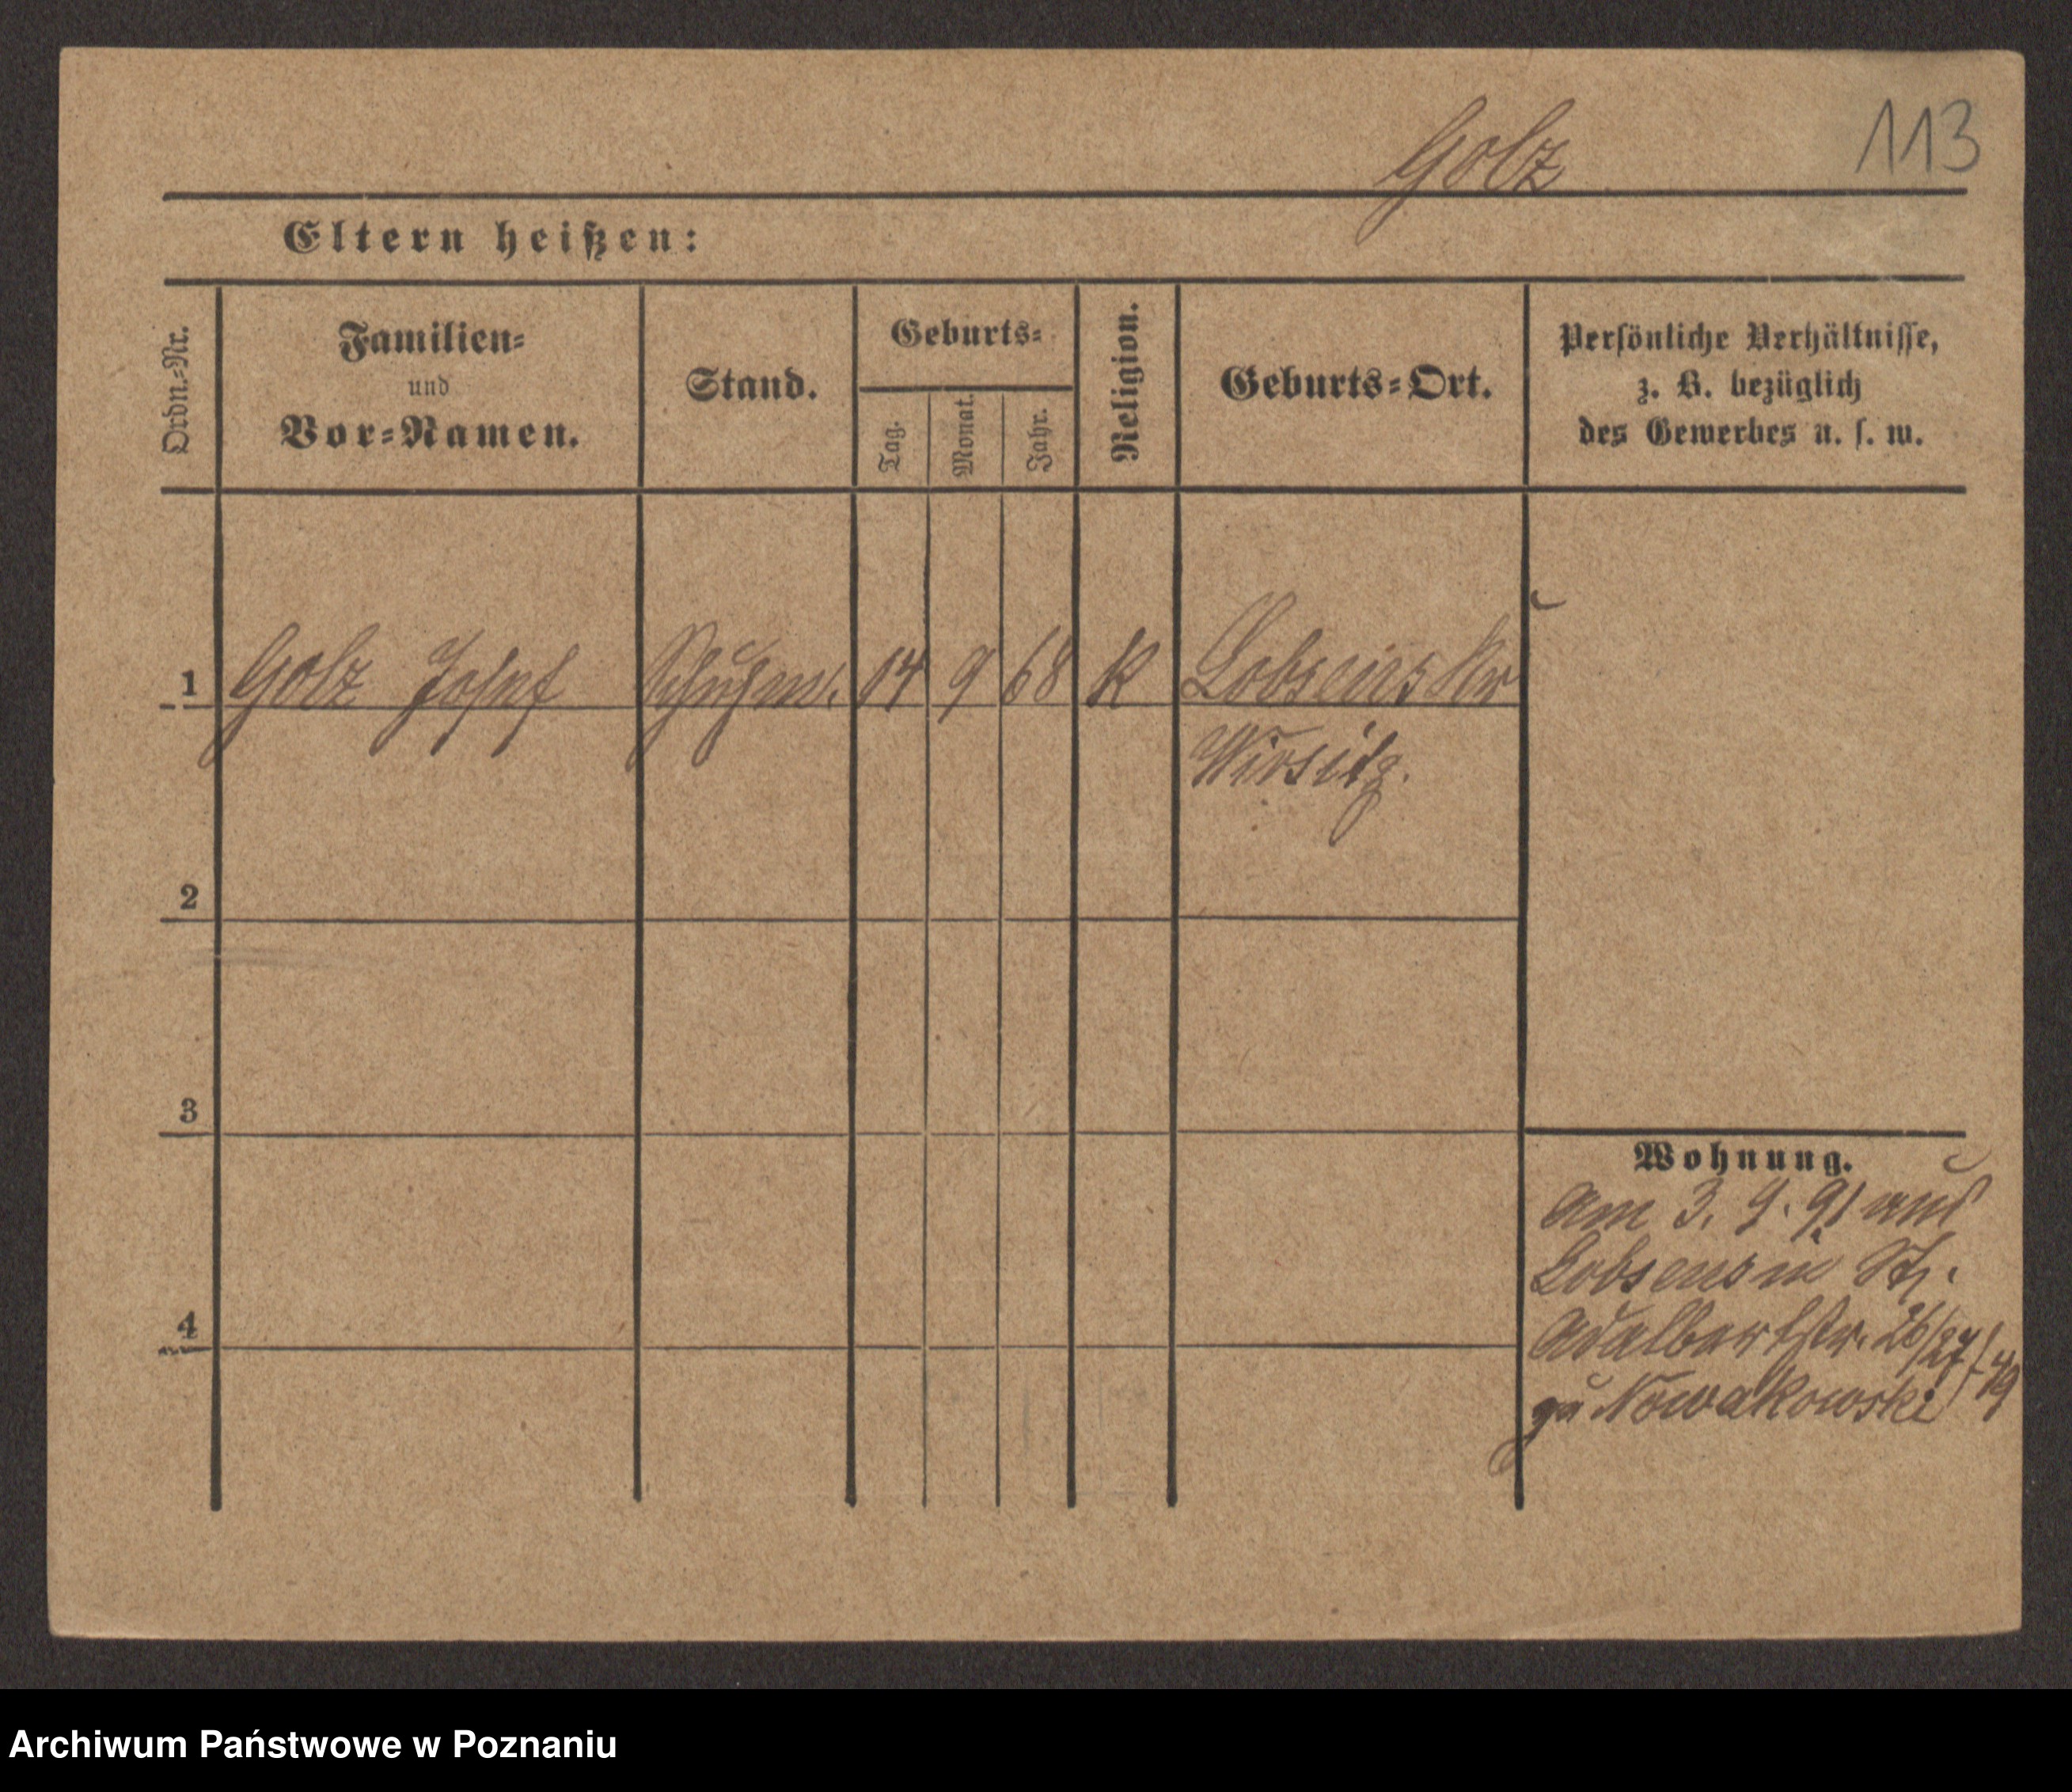 Golz 113
Eltern heißen:
Ordn.-Nr.
Familien-
und
Vor-Namen.
Stand.
Geburts-
Tag.
Monat.
Jahr.
Religion.
Geburts-Ort.
Persönliche Verhältnisse,
z. B. bezüglich
des Gewerbes u. s. w.
1 Golz Josef Schuhm. 14 9 68 K Lobsens Kr
Wirsitz.
2
3
4
Wohnung.
am 3. 9. 91 aus
Lobsens in St.
Adalbertstr. 26/27
zu Nowakowski
Archiwum Państwowe w Poznaniu